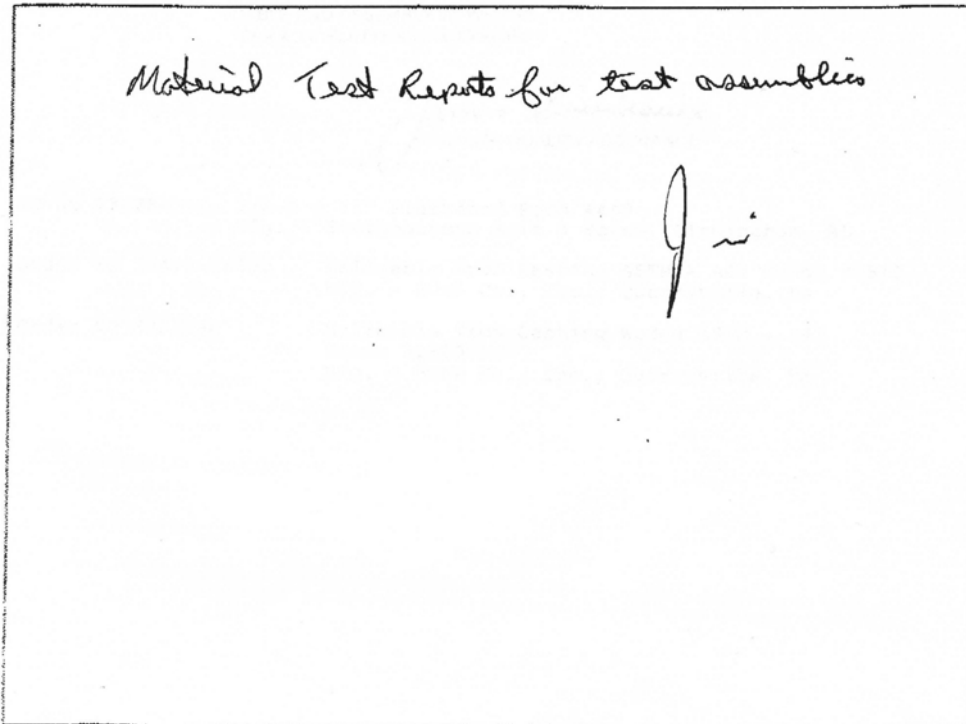 Material Test Reports for test assemblies
Jim